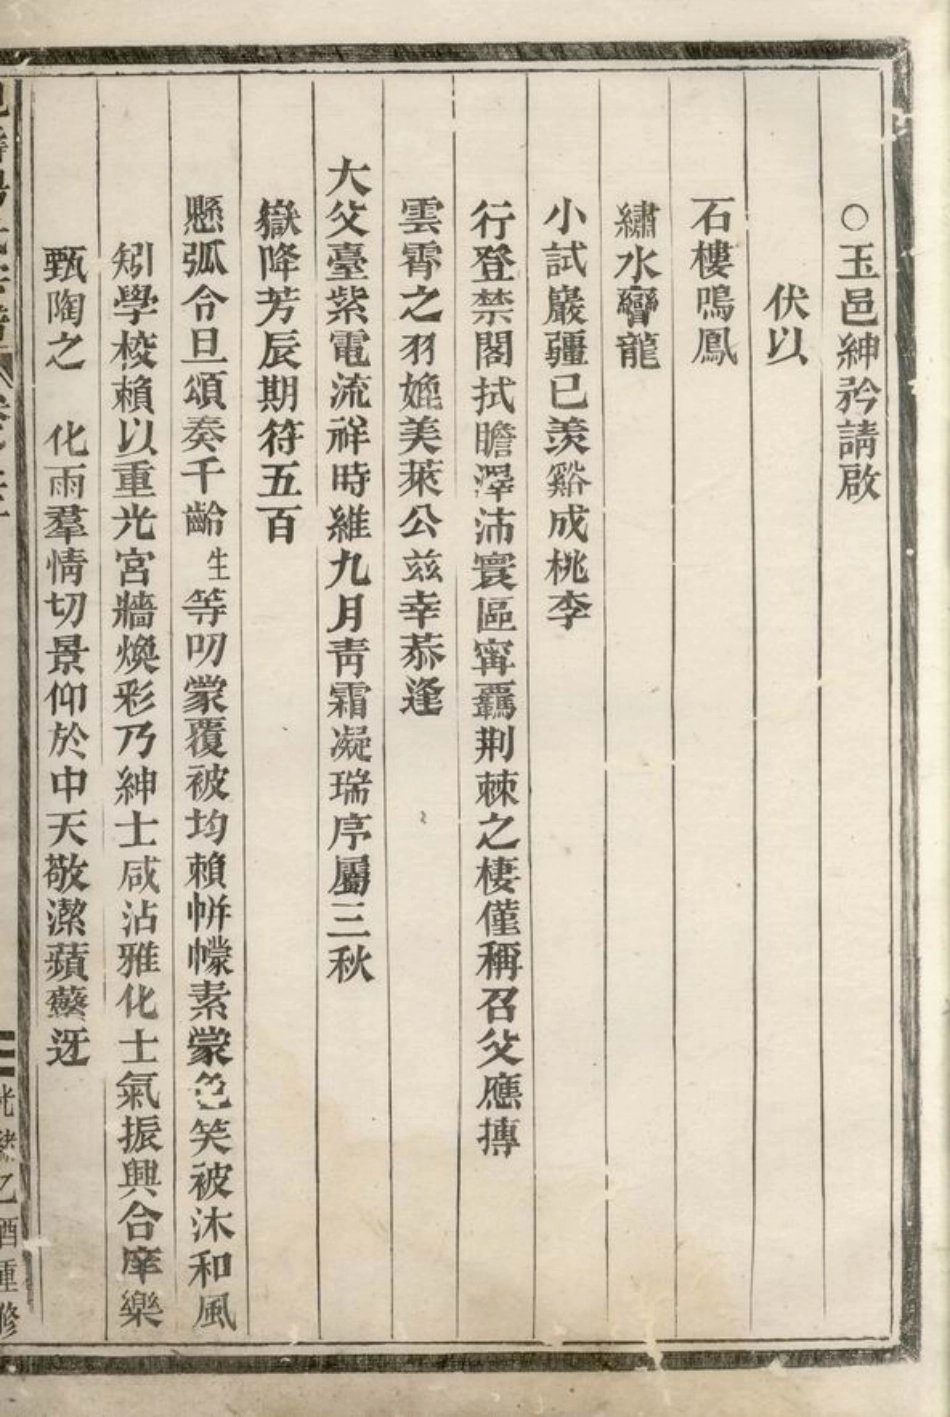 ○玉邑紳矜請啟
伏以
石樓鳴鳳
繡水彎龍
小試巖疆已羨谿成桃李
行登禁閣拭瞻澤沛寰區寗羈荆棘之棲僅稱召父應摶
雲霄之羽媲美萊公兹幸恭逢
大父臺紫電流祥時維九月靑霜凝瑞序屬三秋
嶽降芳辰期符五百
懸弧令旦頌奏千齡生等叨蒙覆被均賴帡幪素蒙色笑被沐和風
矧學校賴以重光宮牆煥彩乃紳士咸沾雅化士氣振興合庠樂
甄陶之 化雨羣情切景仰於中天敬潔蘋蘩迓
光緒乙酉重修